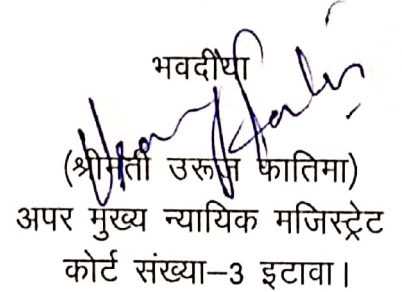 भवदीया
(श्रीमती उरूज फातिमा)
अपर मुख्य न्यायिक मजिस्ट्रेट
कोर्ट संख्या–3 इटावा।